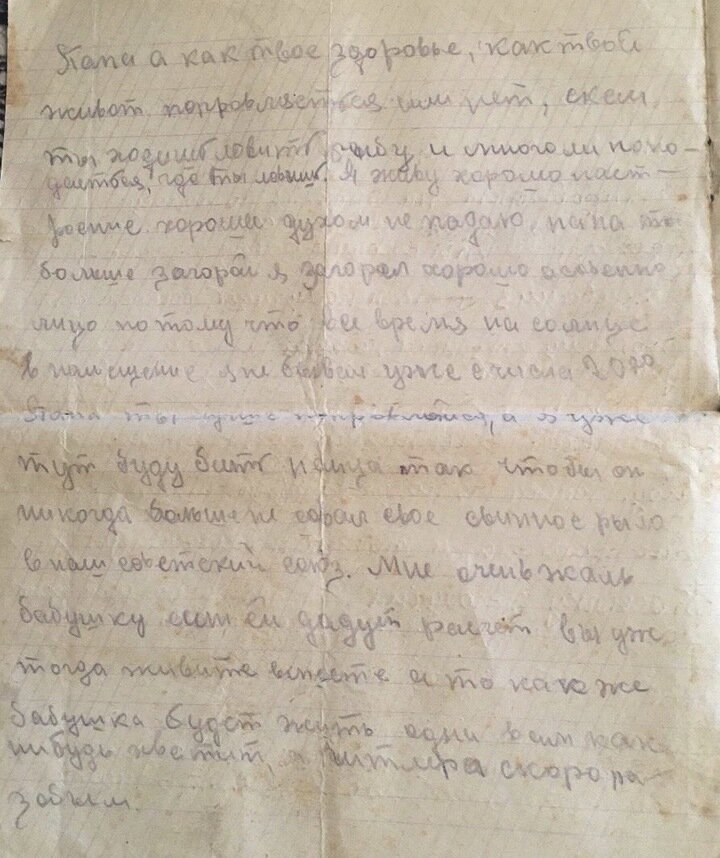 Папа а как твое здоровье, как твой
живот поправляется или нет, скем
ты ходишь ловить рыбу и много ли попо-
дается, где ты ловишь. Я живу хорошо наст-
роение хороший духом не падаю, папа ты
больше загорай я загорел хорошо особенно
лицо потому что все время на солнце
в помещение я не бывал уже с числа 20го
Папа ты лучше поправляйся, а я уже
тут буду бить немца так чтобы он
никогда больше не совал свое свинное рыло
в наш советский союз. Мне очень жаль
бабушку если ей дадут расчет вы уж
тогда живите вместе а то как же
бабушка будет жить одна всем как
нибудь хватит, а гитлера скоро ра-
зобьем.